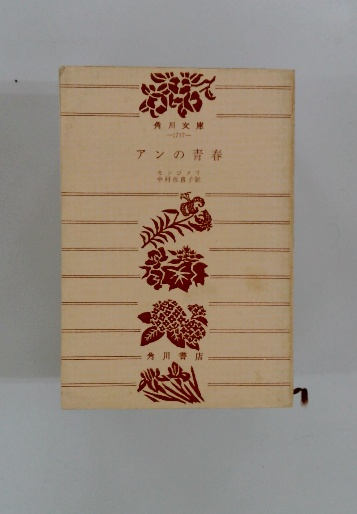 角川文庫
—1717—
アンの青春
モンゴメリ
中村佐喜子訳
角川書店